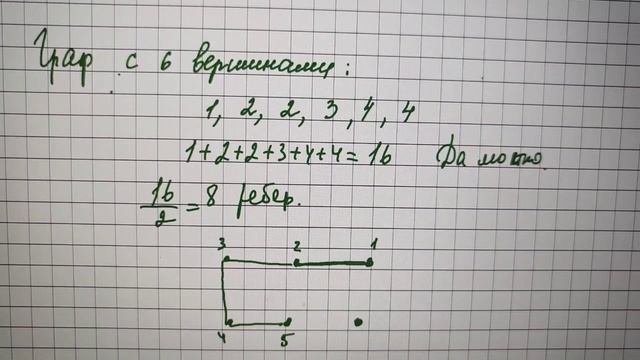 Граф с 6 вершинами:
1, 2, 2, 3, 4, 4
1+2+2+3+4+4=16 Да можно.
16/2 = 8 ребер.
3 2 1
4 5